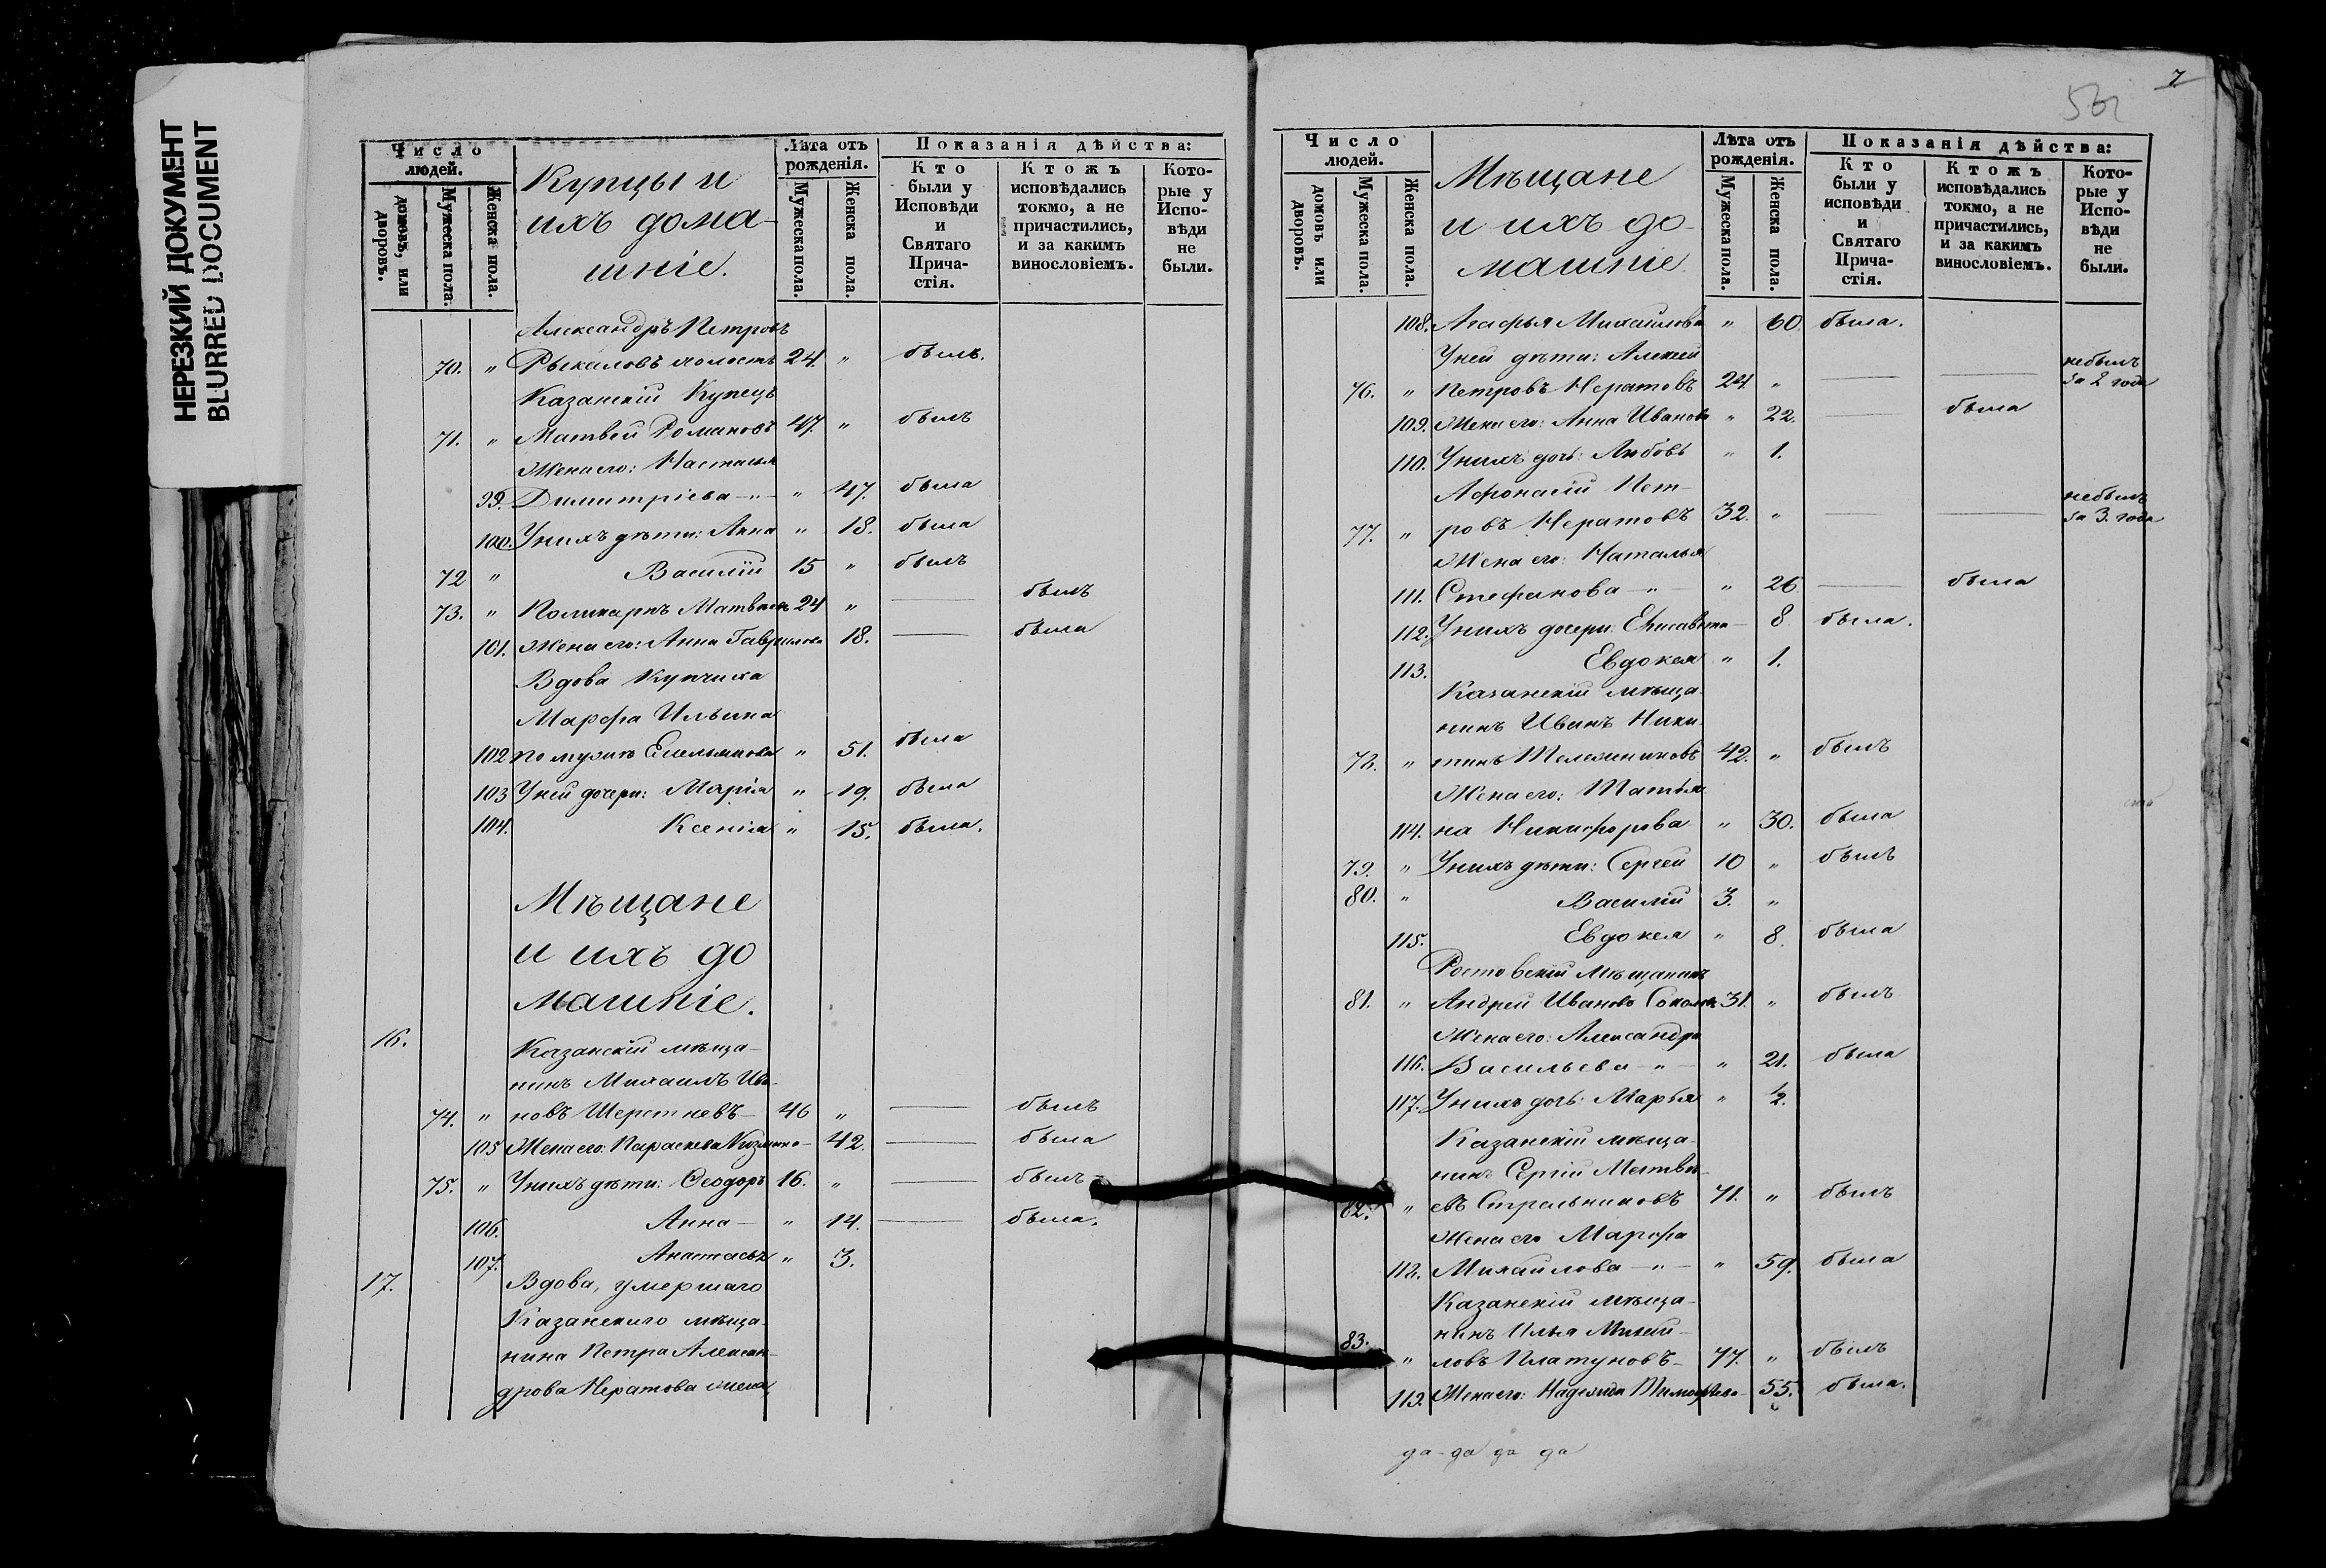 НЕРЕЗКИЙ ДОКУМЕНТ
BLURRED DOCUMENT
Число людей.
домовъ, или дворовъ.
Мужеска пола.
Женска пола.
Купцы и
ихъ дома-
шніе.
Лѣта отъ рожденія.
Мужеска пола.
Женска пола.
Показанія дѣйства:
Кто были у Исповѣди и Святаго Прича- стія.
Ктожъ исповѣдались токмо, а не причастились, и за какимъ винословіемъ.
Кото- рые у Испо- вѣди не были.
Александръ Петровъ
70. " Рыкаловъ холостъ 24. " былъ.
Казанскій Купецъ
71. " Матвей Романовъ 47. " былъ
Жена его: Настасья
99. Димитріева -"- " 47. была
100. У нихъ дѣти: Анна " 18. была
72 " Василій 15 " былъ
73. " Поликарпъ Матвѣевъ 24 " — былъ
101. Жена его: Анна Гаврилова 18. — была
Вдова Купчиха
Марфа Ильина
102 по мужѣ Емельянова " 51. была
103 У ней дочери: Марія " 19. была
104. Ксенія " 15. была.
Мѣщане
и ихъ до
машніе.
16. Казанскій мѣща-
нинъ Михаилъ Ива-
74. " новъ Шерстневъ- 46 " — былъ
105 Жена его: Параскева Козмина- 42. — была
75. " У нихъ дѣти: Ѳеодоръ 16. " — былъ
106. Анна- " 14. — была.
107. Анастасья " 3.
17. Вдова, умершаго
Казанскаго мѣща-
нина Петра Алексан-
дрова Нератова жена
7
562
Число людей.
домовъ или дворовъ.
Мужеска пола.
Женска пола.
Мѣщане
и ихъ до-
машніе
Лѣта отъ рожденія.
Мужеска пола.
Женска пола.
Показанія дѣйства:
Кто были у исповѣди и Святаго Прича- стія.
Ктожъ исповѣдались токмо, а не причастились, и за какимъ винословіемъ.
Кото- рые у Испо- вѣди не были.
108. Агафья Михайлова " 60. была.
У ней дѣти: Алексей
76. " Петровъ Нератовъ 24. " — — небылъ за 2 года
109. Жена его: Анна Иванова " 22. — была
110. У нихъ дочь: Любовь " 1.
Афонасій Пет-
77. " ровъ Нератовъ 32. " — — небылъ за 3. года
Жена его: Наталья
111. Стефанова -"- " 26 — была
112. У нихъ дочери: Елисавета- 8 была.
113. Евдокея " 1.
Казанскій мѣща-
нинъ Иванъ Ники-
78. " тинъ Тележниковъ 42. " былъ
Жена его: Татья
114. на Никифорова " 30. была
79. " У нихъ дѣти: Сергей 10 " былъ
80. " Василій 3. "
115. Евдокея " 8. была
Ростовскій Мѣщанинъ
81. " Андрей Ивановъ 31. " былъ
Жена его: Александра
116. Васильева -"- " 21. была
117. У нихъ дочь: Марья " ½.
Казанскій мѣща-
нинъ Сергій Матвѣ-
82. " евъ Стрельниковъ 71. " былъ
Жена его Марфа
118. Михайлова -"- " 59. была
Казанскій мѣща-
нинъ Илья Михай-
83. " ловъ Платуновъ- 77. " былъ
119. Жена его: Надежда Тимофѣева- 55. была.
да-да да да